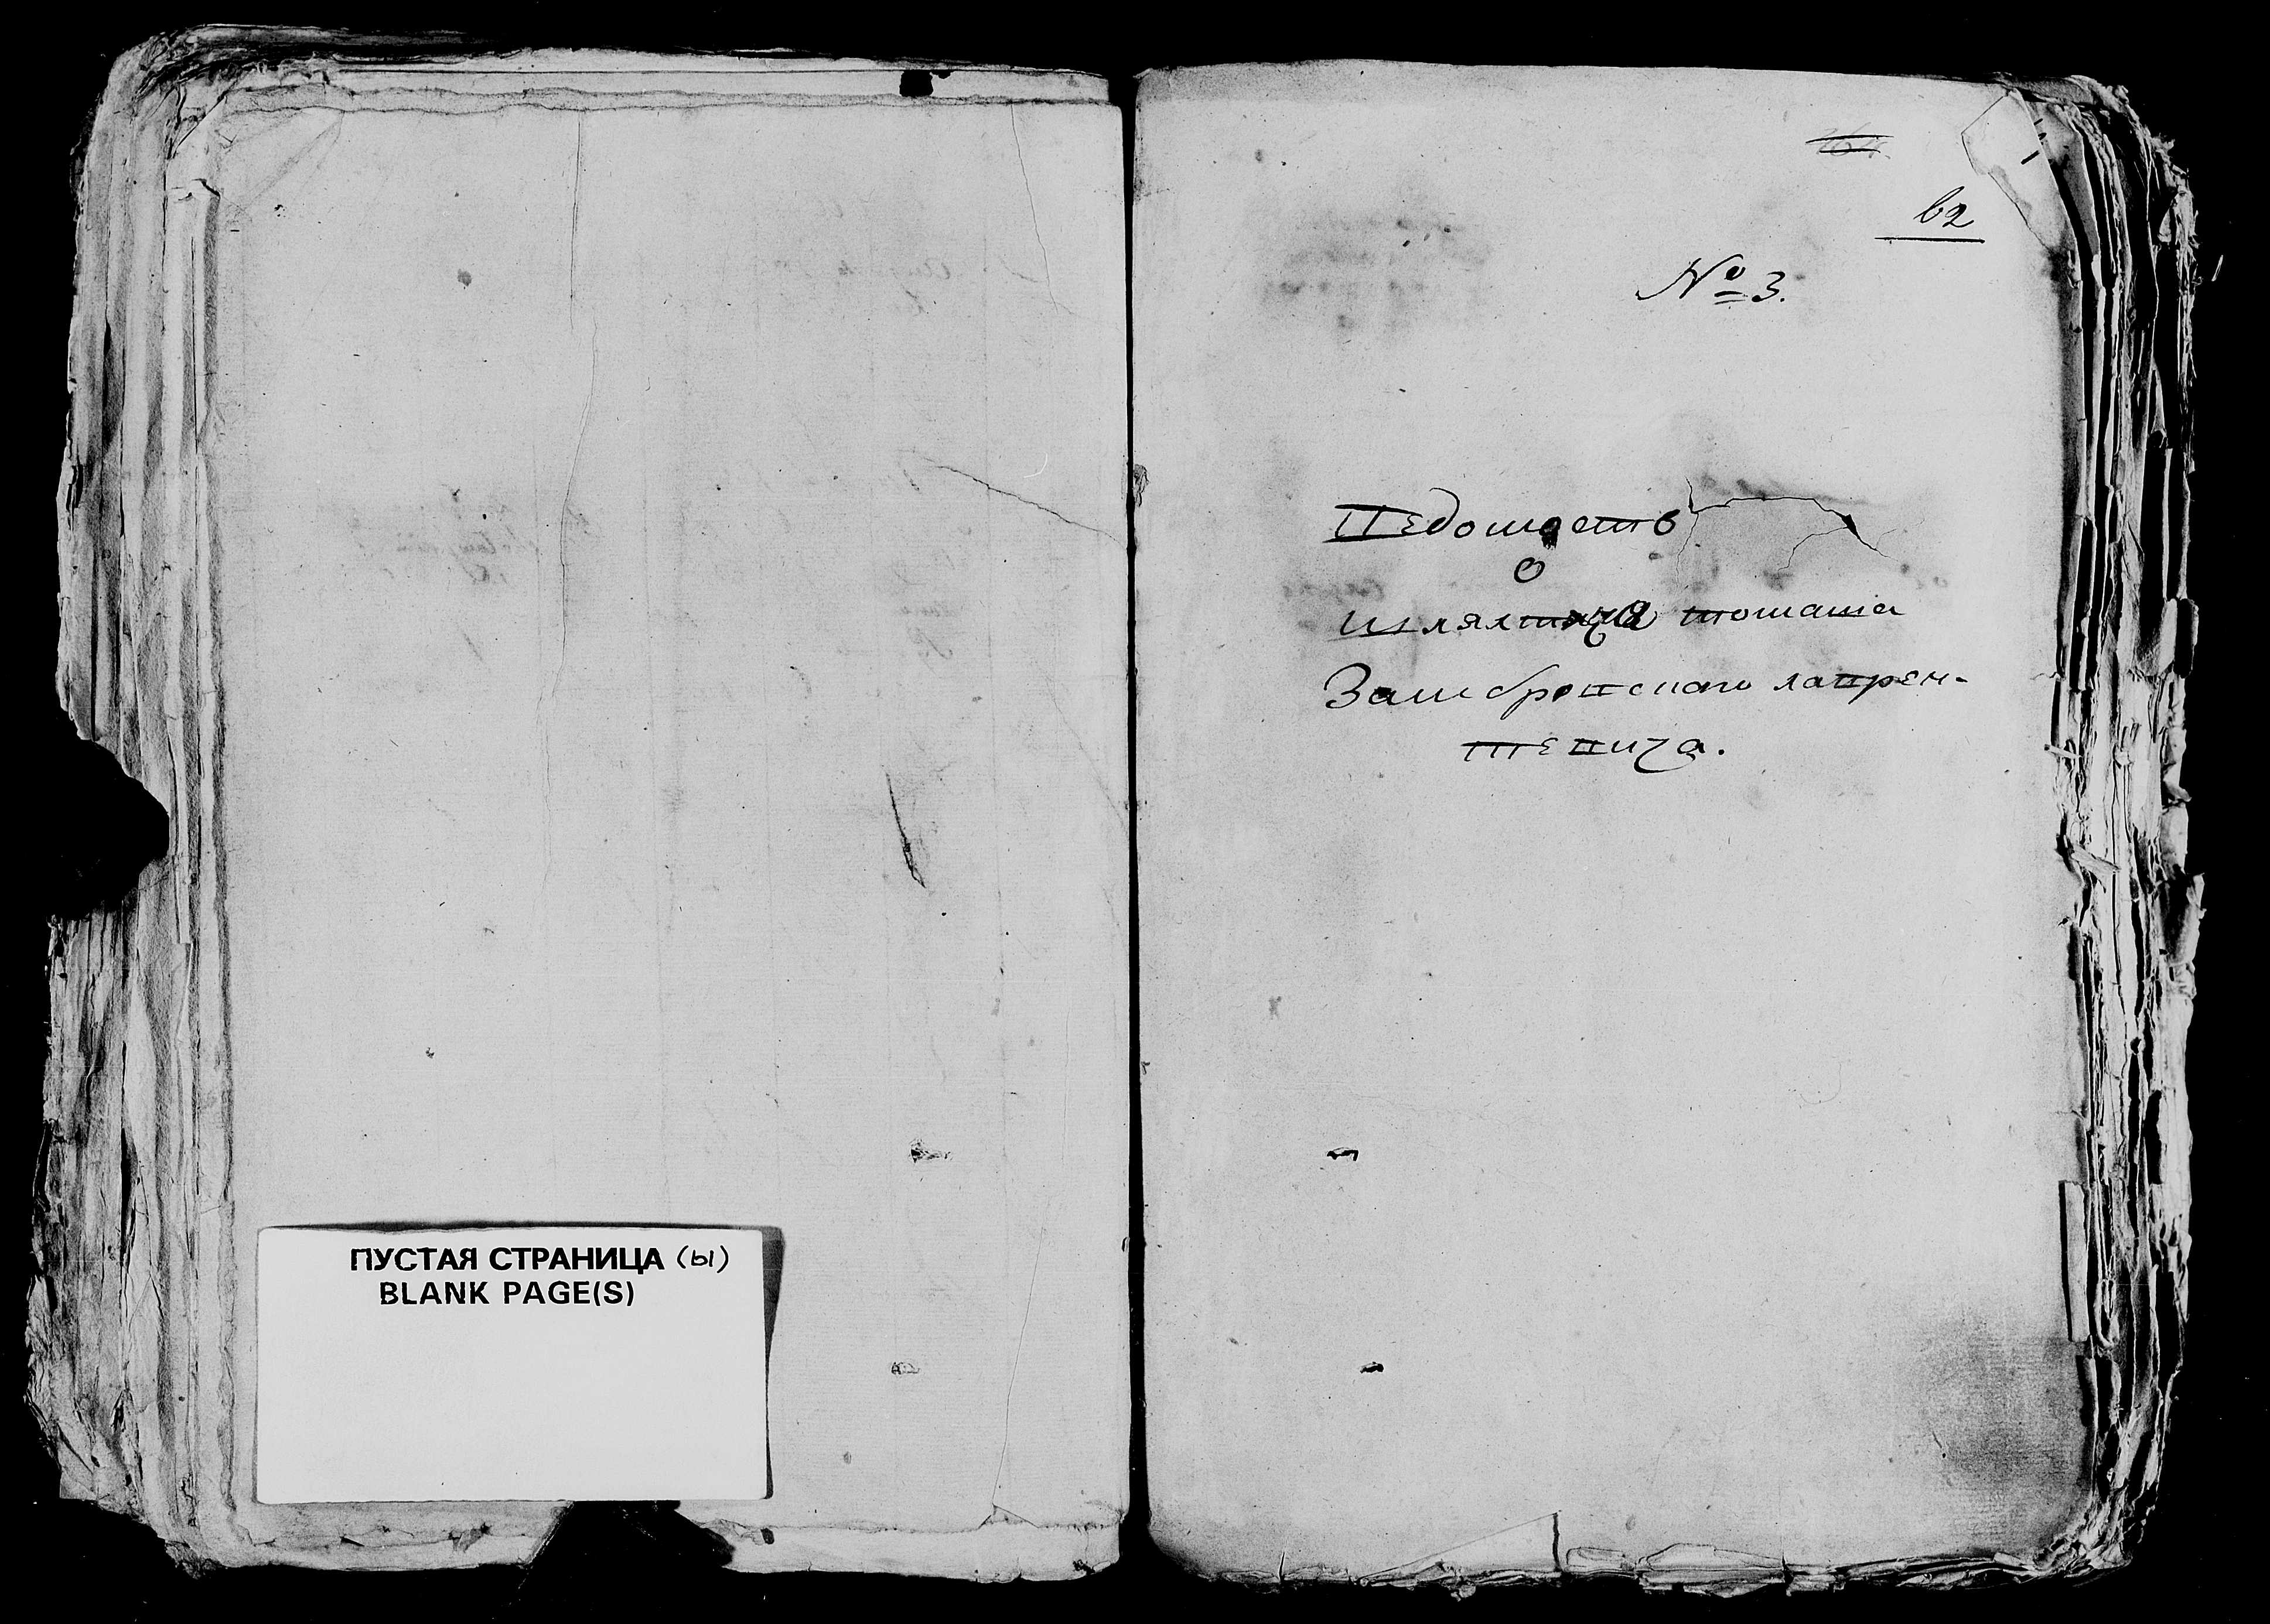 ПУСТАЯ СТРАНИЦА (ы)
BLANK PAGE(S)
62
№ 3.
Ведомость
о
шляхтича томаша
Замбровскаго лаврен-
тевича.